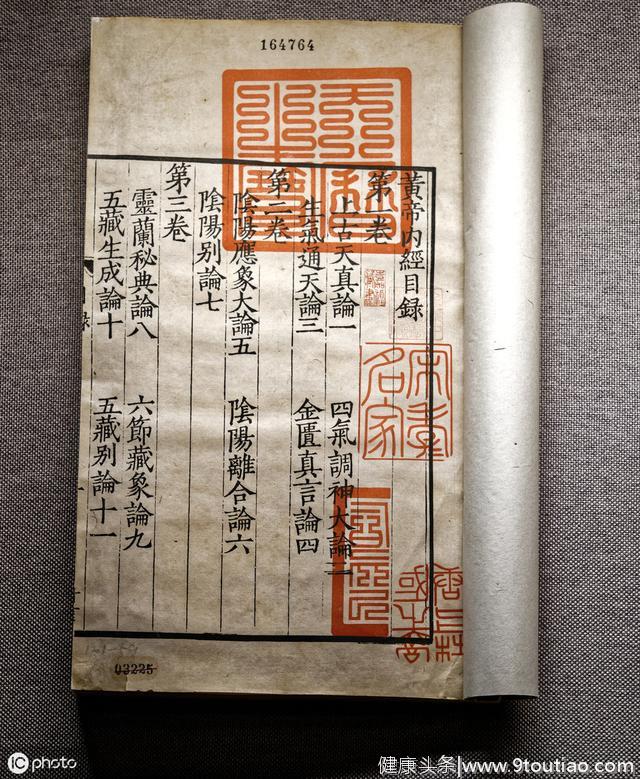 164764
黃帝内經目錄
第一卷
上古天真論一 四氣調神大論二
生氣通天論三 金匱真言論四
第二卷
陰陽應象大論五 陰陽離合論六
陰陽别論七
第三卷
靈蘭秘典論八 六節藏象論九
五藏生成論十 五藏别論十一
錄
03225
iC photo
健康头条/www.9toutiao.com